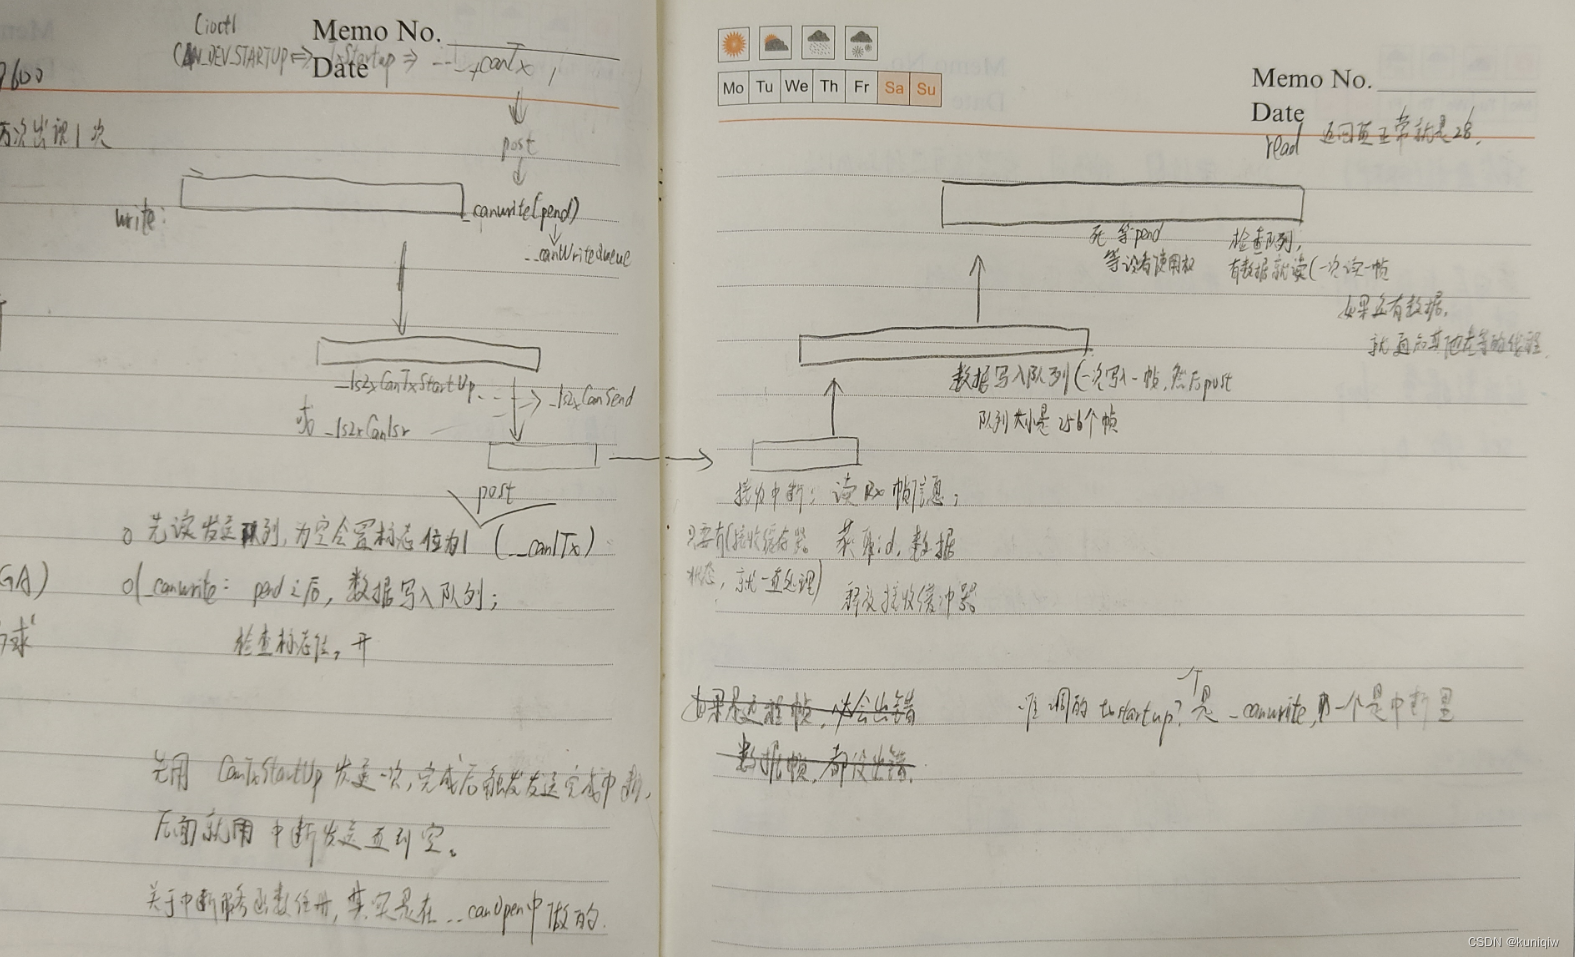 (ioctl
Memo No.
CAN_DEV_STARTUP ⇔ txStartup ⇒ __canTx
Date
9600
万次出现1次
post
write:
_canwrite(pend)
__canWriteQueue
_ls2xCanTxStartUp
_ls2xCanSend
或 _ls2xCanIsr
post
先读发送队列,为空会置标志位为1 (__canITx)
GA)
_canwrite: pend之后,数据写入队列;
检查标志位。开
先用 CanTxStartUp 发送一次,完成后触发发送完成中断,
后面就用中断发送直到空。
关于中断服务函数注册,其实是在 __canOpen中做的.
Mo Tu We Th Fr Sa Su
Memo No.
Date
read 返回值正常就是28.
死等pend 检查队列,
等读者使用权 有数据就读(一次读一帧
如果还有数据,
就通知其他在等的线程
数据写入队列(一次写入一帧,然后post
队列大小是256个帧
接收中断: 读Rx帧信息,
只要有(接收缓存器 获取id,数据
状态,就一直处理) 释放接收缓冲器
如果是远程帧,必会出错
谁调的 txstartup?一个是_canwrite,另一个是中断里
数据帧,都没出错.
CSDN @kuniqiw